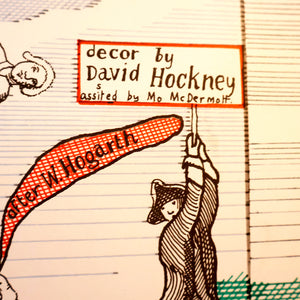 decor by
David Hockney
assited by Mo McDermott.
s
after W Hogarth